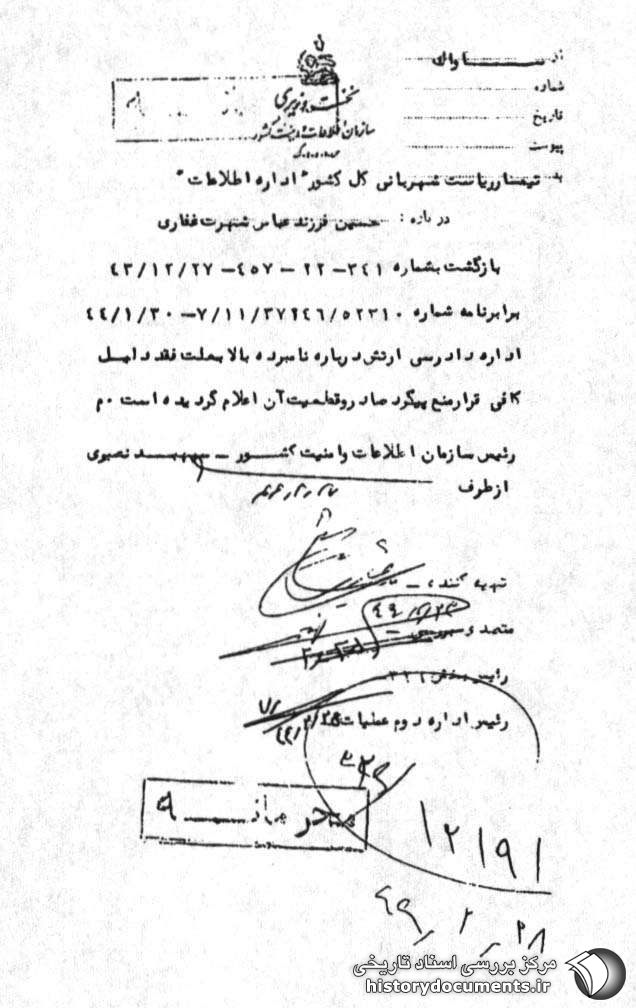 از ســـاواك
شماره
تاریخ
پیوست
نخست وزیری
سازمان اطلاعات و امنیت کشور
س.ا.و.ا.ك
به تیمسار ریاست شهربانی کل کشور "اداره اطلاعات"
درباره : حسین فرزند عباس شهرت غفاری
بازگشت بشماره ۲۴۱–۲۲ – ۴۵۷– ۴۳/۱۲/۲۷
برابر نامه شماره ۷/۱۱/۳۷۹۴۶/۵۲۳۱۰– ۴۴/۱/۳۰
اداره دادرسی ارتش درباره نامبرده بالا بعلت فقد دلیل
کافی قرار منع پیگرد صادر و قطعیت آن اعلام گردیده است ۰م
رئیس سازمان اطلاعات و امنیت کشـــور – سپهبـــد نصیری
از طرف
تهیه کننده –
رئیس بخش ۳۲۱
رئیس اداره دوم عملیات
محرمانـــه
۱۲۱۹۱
۲۸
مرکز بررسی اسناد تاریخی
historydocuments.ir